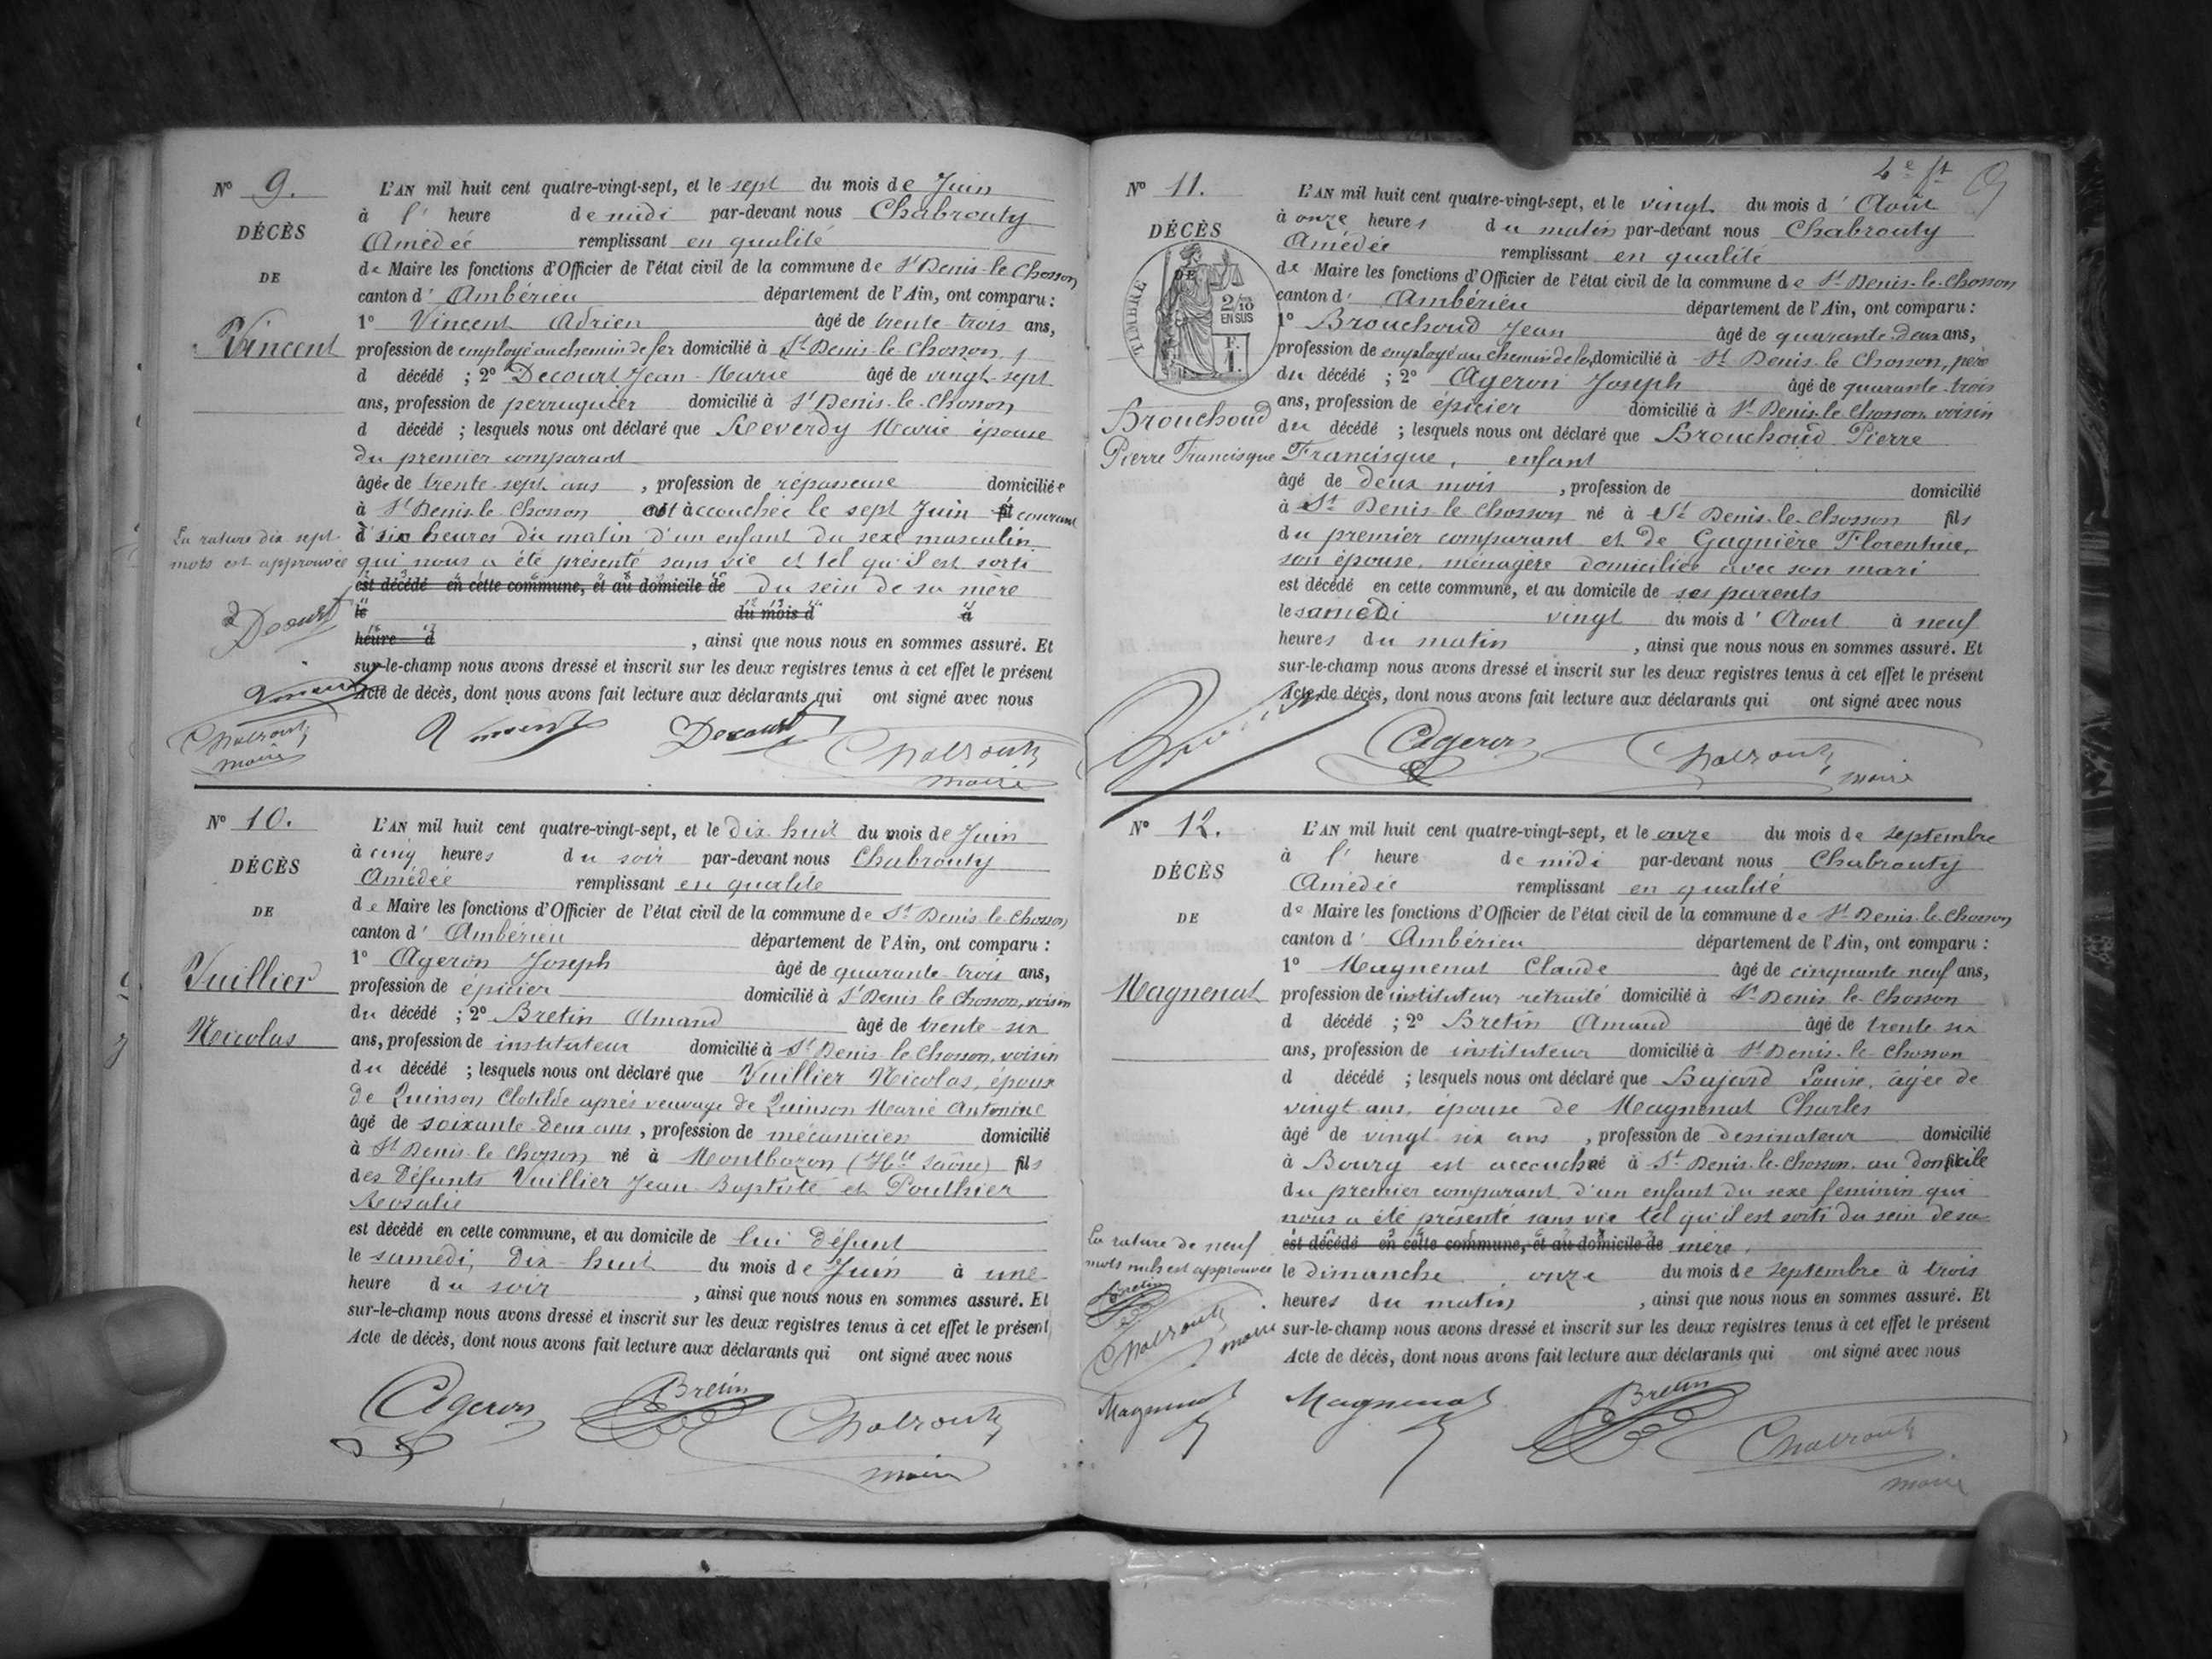 N° 9.
DÉCÈS
DE
Vincent
La rature dix sept
mots est approuvée
Decourt
Vincent
Chabrouty
maire
L'AN mil huit cent quatre-vingt-sept, et le sept du mois de Juin
à l' heure de midi par-devant nous Chabrouty
Amédée remplissant en qualité
de Maire les fonctions d'Officier de l'état civil de la commune de St Denis-le Chosson
canton d' Ambérieu département de l'Ain, ont comparu :
1° Vincent Adrien âgé de trente-trois ans,
profession de employé au chemin de fer domicilié à St Denis-le Chosson,
d décédé ; 2° Decourt Jean-Marie âgé de vingt-sept
ans, profession de perruquier domicilié à St Denis-le-Chosson
d décédé ; lesquels nous ont déclaré que Reverdy Marie épouse
du premier comparant
âgée de trente-sept ans , profession de repasseuse domiciliée
à St Denis-le-Chosson est accouchée le sept Juin courant
à six heures du matin d'un enfant du sexe masculin
qui nous a été présenté sans vie et tel qu'il est sorti
est décédé en cette commune, et au domicile de du sein de sa mère
le du mois d à
heure d , ainsi que nous nous en sommes assuré. Et
sur-le-champ nous avons dressé et inscrit sur les deux registres tenus à cet effet le présent
Acte de décès, dont nous avons fait lecture aux déclarants qui ont signé avec nous
Vincent Decourt Chabrouty
maire
N° 10.
DÉCÈS
DE
Vuillier
Nicolas
L'AN mil huit cent quatre-vingt-sept, et le dix-huit du mois de Juin
à cinq heures du soir par-devant nous Chabrouty
Amédée remplissant en qualité
de Maire les fonctions d'Officier de l'état civil de la commune de St Denis-le-Chosson
canton d' Ambérieu département de l'Ain, ont comparu :
1° Ageron Joseph âgé de quarante-trois ans,
profession de épicier domicilié à St Denis le Chosson, voisin
du décédé ; 2° Bretin Amand âgé de trente-six
ans, profession de instituteur domicilié à St Denis-le Chosson, voisin
du décédé ; lesquels nous ont déclaré que Vuillier Nicolas, époux
de Quinson Clotilde après veuvage de Quinson Marie Antonine
âgé de soixante-deux ans , profession de mécanicien domicilié
à St Denis-le Chosson né à Montbozon (Hte Saône) fils
des défunts Vuillier Jean-Baptiste et Pouthier
Rosalie
est décédé en cette commune, et au domicile de lui défunt
le samedi, dix-huit du mois de Juin à une
heure du soir , ainsi que nous nous en sommes assuré. Et
sur-le-champ nous avons dressé et inscrit sur les deux registres tenus à cet effet le présent
Acte de décès, dont nous avons fait lecture aux déclarants qui ont signé avec nous
Ageron Bretin Chabrouty
maire
N° 11.
DÉCÈS
DE
TIMBRE
2/10
EN SUS
F.
1.
Brouchoud
Pierre Francisque
L'AN mil huit cent quatre-vingt-sept, et le vingt du mois d' Août
à onze heures du matin par-devant nous Chabrouty
Amédée remplissant en qualité
de Maire les fonctions d'Officier de l'état civil de la commune de St Denis-le-Chosson
canton d' Ambérieu département de l'Ain, ont comparu :
1° Brouchoud Jean âgé de quarante-deux ans,
profession de employé au chemin de fer, domicilié à St Denis-le Chosson, père
du décédé ; 2° Ageron Joseph âgé de quarante-trois
ans, profession de épicier domicilié à St Denis-le Chosson voisin
du décédé ; lesquels nous ont déclaré que Brouchoud Pierre
Francisque, enfant
âgé de deux mois , profession de domicilié
à St Denis-le Chosson né à St Denis-le-Chosson fils
du premier comparant et de Gagnière Florentine,
son épouse, ménagère domiciliée avec son mari
est décédé en cette commune, et au domicile de ses parents
le samedi vingt du mois d' Aout à neuf
heures du matin , ainsi que nous nous en sommes assuré. Et
sur-le-champ nous avons dressé et inscrit sur les deux registres tenus à cet effet le présent
Acte de décès, dont nous avons fait lecture aux déclarants qui ont signé avec nous
Ageron Chabrouty
maire
N° 12.
DÉCÈS
DE
Magnenat
La rature de neuf
mots nuls est approuvée
Bretin
Chabrouty
maire
Magnenat
L'AN mil huit cent quatre-vingt-sept, et le onze du mois de septembre
à l' heure de midi par-devant nous Chabrouty
Amédée remplissant en qualité
de Maire les fonctions d'Officier de l'état civil de la commune de St Denis-le-Chosson
canton d' Ambérieu département de l'Ain, ont comparu :
1° Magnenat Claude âgé de cinquante-neuf ans,
profession de instituteur retraité domicilié à St Denis-le-Chosson
d décédé ; 2° Bretin Amand âgé de trente six
ans, profession de instituteur domicilié à St Denis-le-Chosson
d décédé ; lesquels nous ont déclaré que Bujard Louise, âgée de
vingt ans, épouse de Magnenat Charles
âgé de vingt-six ans , profession de dessinateur domicilié
à Bourg est accouché à St Denis-le-Chosson, au domicile
du premier comparant d'un enfant du sexe féminin qui
nous a été présenté sans vie tel qu'il est sorti du sein de sa
est décédé en cette commune, et au domicile de mère.
le dimanche onze du mois de septembre à trois
heures du matin , ainsi que nous nous en sommes assuré. Et
sur-le-champ nous avons dressé et inscrit sur les deux registres tenus à cet effet le présent
Acte de décès, dont nous avons fait lecture aux déclarants qui ont signé avec nous
Magnenat Bretin Chabrouty
maire